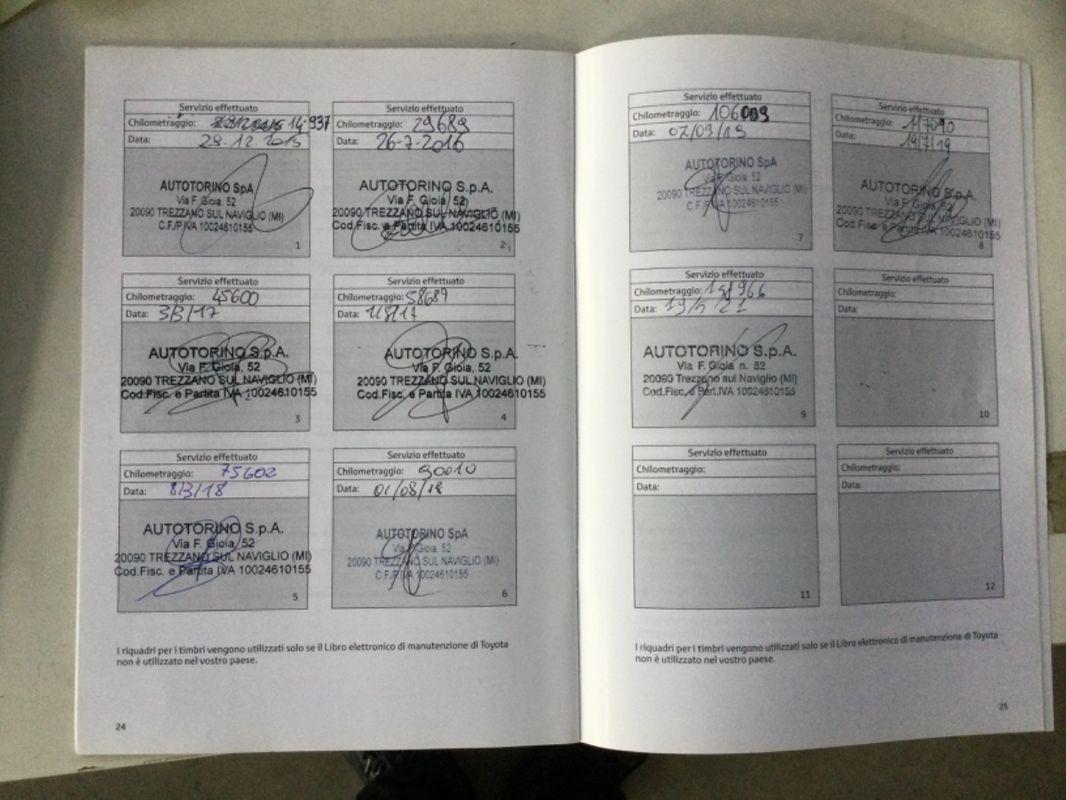 Servizio effettuato
Chilometraggio: 14.937
Data: 29.12.2015
AUTOTORINO SpA
Via F. Gioia, 52
20090 TREZZANO SUL NAVIGLIO (MI)
C.F./P.IVA 10024610155
1
Servizio effettuato
Chilometraggio: 29689
Data: 26-7-2016
AUTOTORINO S.p.A.
Via F. Gioia, 52
20090 TREZZANO SUL NAVIGLIO (MI)
Cod.Fisc. e Partita IVA 10024610155
2
Servizio effettuato
Chilometraggio: 45600
Data: 3/3/17
AUTOTORINO S.p.A.
Via F. Gioia, 52
20090 TREZZANO SUL NAVIGLIO (MI)
Cod.Fisc. e Partita IVA 10024610155
3
Servizio effettuato
Chilometraggio: 58689
Data:
AUTOTORINO S.p.A.
Via F. Gioia, 52
20090 TREZZANO SUL NAVIGLIO (MI)
Cod.Fisc. e Partita IVA 10024610155
4
Servizio effettuato
Chilometraggio: 75602
Data: 8/3/18
AUTOTORINO S.p.A.
Via F. Gioia, 52
20090 TREZZANO SUL NAVIGLIO (MI)
Cod.Fisc. e Partita IVA 10024610155
5
Servizio effettuato
Chilometraggio: 90010
Data: 01/08/18
AUTOTORINO SpA
Via F. Gioia, 52
20090 TREZZANO SUL NAVIGLIO (MI)
C.F./P.IVA 10024610155
6
I riquadri per i timbri vengono utilizzati solo se il Libro elettronico di manutenzione di Toyota
non è utilizzato nel vostro paese.
24
Servizio effettuato
Chilometraggio: 106009
Data: 07/03/19
AUTOTORINO SpA
Via F. Gioia, 52
20090 TREZZANO SUL NAVIGLIO (MI)
C.F./P.IVA 10024610155
7
Servizio effettuato
Chilometraggio: 117090
Data: 19/7/19
AUTOTORINO S.p.A.
Via F. Gioia, 52
20090 TREZZANO SUL NAVIGLIO (MI)
Cod.Fisc. e Partita IVA 10024610155
8
Servizio effettuato
Chilometraggio:
Data: 19/5/21
AUTOTORINO S.p.A.
Via F. Gioia n. 52
20090 Trezzano sul Naviglio (MI)
Cod.Fisc. e Part.IVA 10024610155
9
Servizio effettuato
Chilometraggio:
Data:
10
Servizio effettuato
Chilometraggio:
Data:
11
Servizio effettuato
Chilometraggio:
Data:
12
I riquadri per i timbri vengono utilizzati solo se il Libro elettronico di manutenzione di Toyota
non è utilizzato nel vostro paese.
25